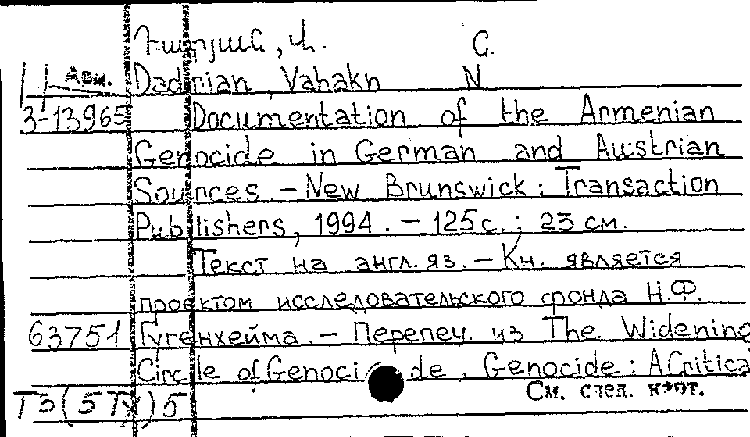 Դադրյան, Վ. С.
Арм. Dadrian, Vahakn N
3-13965 Documentation of the Armenian
Genocide in German and Austrian
Sources – New Brunswick: Transaction
Publishers, 1994. – 125 с.; 23 см.
Текст на англ. яз. – Кн. является
проектом исследовательского фонда Н.Ф.
63751 Гугенхейма. – Перепеч. из The Widening
Circle of Genocide. Genocide: A Critica
См. след. карт.
Т3(5Ту)5